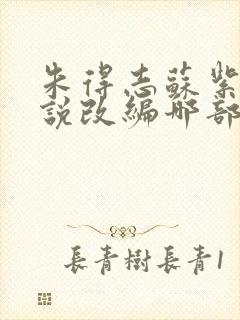 朱得志蘇紫
說改編那部
長青樹長青1